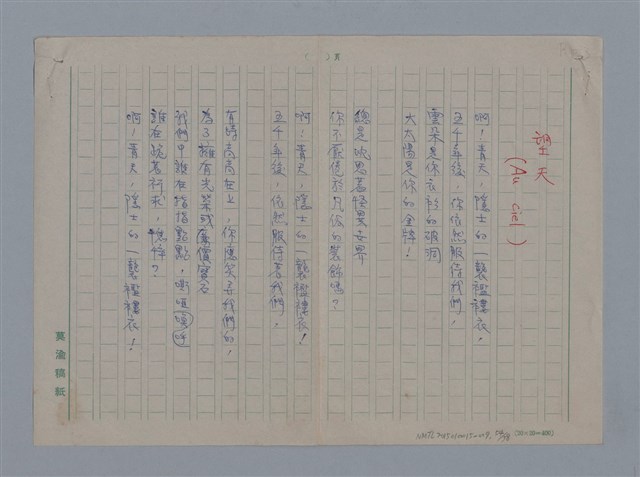 望天
(Au ciel)
啊！青天，隱士的一襲襤褸衣，
五千年後，你依然服侍我們，
雲朵是你衣衫的破洞
大太陽是你的金牌！
總是沈思著怪異世界
你不厭倦於凡俗的裝飾嗎？
啊！青天，隱士的一襲襤褸衣！
五千年後，依然服侍著我們，
有時高高在上，你應笑弄我們的，
為了擁有光榮或廉價寶石
我們中誰在指指點點，嘶喊
誰在跪著行求，
啊！青天，隱士的一襲襤褸衣！
莫渝稿紙
(20×20=400)